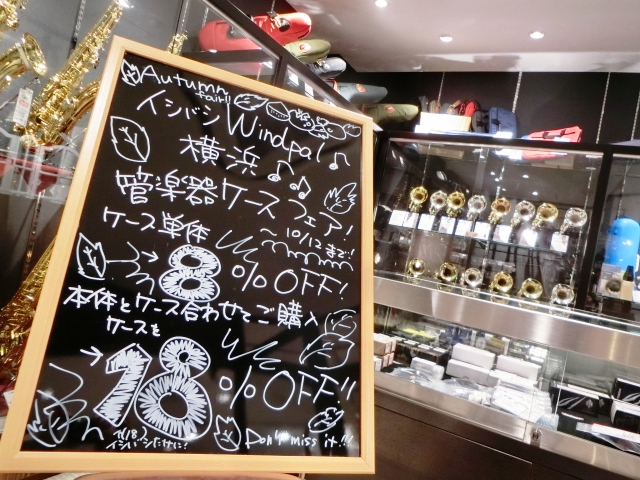 Autumn
fair!!
イシバシ Windpal♪
横浜♪♫
管楽器ケースフェア!
〜10/12まで!
ケース単体
→8%OFF!
本体とケース合わせてご購入
ケースを
→18%OFF!!
イシバシだけに?
Don't miss it!!!